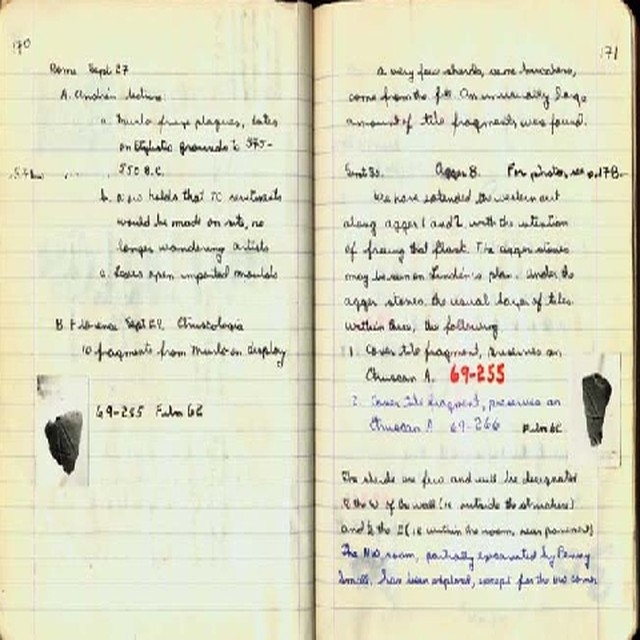 170
Rome Sept 27
A. Andrén lecture
a. Murlo frieze plaques, dates
on stylistic grounds to 575-
550 B.C.
b. now holds that TC revetments
would be made on site, no
longer wandering artists
c. Leaves open imported moulds
B. Florence Sept 29. Etruscologia
10 fragments from Murlo on display
69-255 Film 62
171
a very few sherds, some bucchero,
come from the fill. An unusually large
amount of tile fragments was found.
Sept 30. Agger 8. For photos, see p. 178-
We have extended the western cut
along agger 1 and 2, with the intention
of freeing that flank. The agger stones
may be seen on Lindén's plan. Under the
agger stones, the usual layer of tiles.
Within this, the following
1. Cover tile fragment, preserves an
Etruscan A. 69-255
2. Cover tile fragment, preserves an
Etruscan A 69-266 Film 62
The sherds are few and will be designated
to the W of the wall (ie outside the structure)
and to the E (ie within the room, near pavement)
The NW room, partially excavated by Penny
Small, has been explored, except for the NW corner